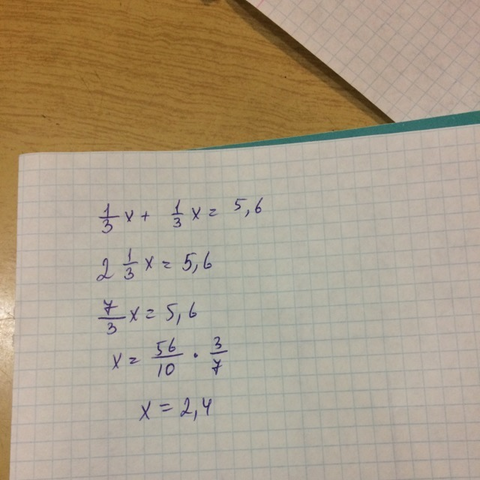 1/3 x + 1/3 x = 5,6
2 1/3 x = 5,6
7/3 x = 5,6
x = 56/10 · 3/7
x = 2,4